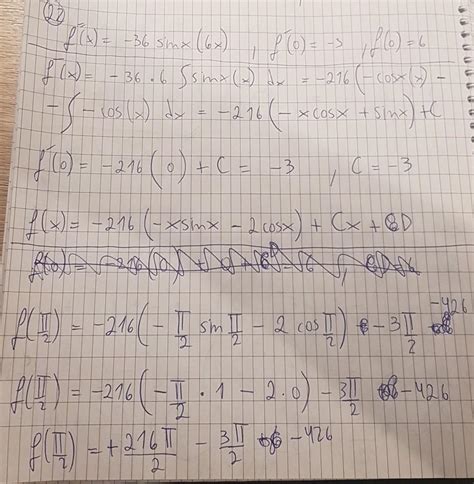 22
f''(x) = -36 sinx (6x) , f'(0) = -3 , f(0) = 6
f'(x) = -36 · 6 ∫ sinx(x) dx = -216 (-cosx (x) -
- ∫ -cos(x) dx = -216 (-xcosx + sinx) + C
f'(0) = -216 (0) + C = -3 , C = -3
f(x) = -216 (-xsinx - 2cosx) + Cx + D
f(π/2) = -216 (- π/2 sin π/2 - 2 cos π/2) - 3π/2 -426
f(π/2) = -216 (- π/2 · 1 - 2·0) - 3π/2 -426
f(π/2) = + 216π/2 - 3π/2 -426